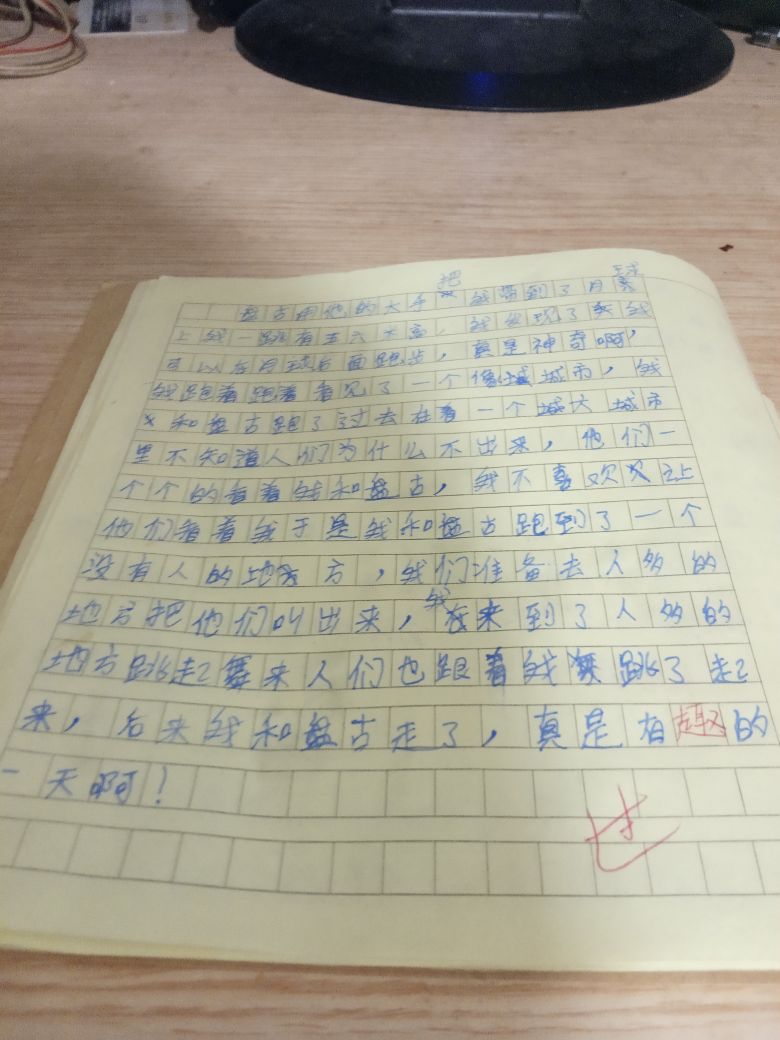 盘古用他的大手把我带到了月球
上我一跳有五六米高，我发现了我
可以在月球后面跑步，真是神奇啊，
我跑着跑着看见了一个像城城市，我
和盘古跑了过去在着一个城大城市
里不知道人们为什么不出来，他们一
个个的看着我和盘古，我不喜欢让
他们看着我于是我和盘古跑到了一个
没有人的地方，我们准备去人多的
地方把他们叫出来，我来到了人多的
地方跳起舞来人们也跟着我跳了起
来，后来我和盘古走了，真是有趣的
一天啊！